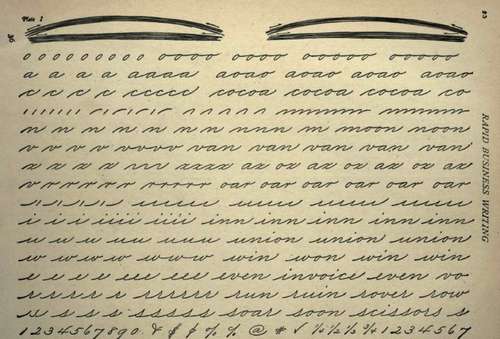 Plate 2
23
RAPID BUSINESS WRITING
o o o o o o o o o o oooo oooo ooooo ooooo
a a a a a aaaa aoao aoao aoao aoao
c c c c c ccccc cocoa cocoa cocoa co
n n n n n n n n n nnn m moon noon
v v v v vvvv van van van van van
x x x x xxxx ax ox ax ox ax ox ax
r r r r r r rrrrr oar oar oar oar oar oar
i i i i iiii iiii inn inn inn inn inn
u u u uu uuu union union union
w w w w www win won win win
e e e e e eee eee even invoice even vo
r r r r r rrrrr run ruin rover row
s s s s sssss soar soon scissors s
1234567890. & $ ¢ % % @ # √ ¼ ½ ⅓ ¾ 1234567